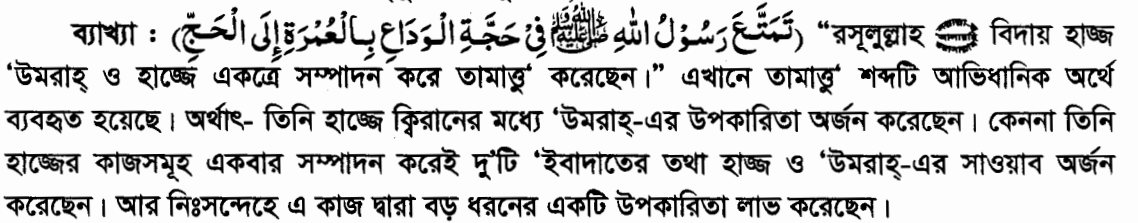 ব্যাখ্যা : (تَمَتَّعَ رَسُوْلُ اللهِ ﷺ فِيْ حَجَّةِ الْوَدَاعِ بِالْعُمْرَةِ إِلَى الْحَجِّ) “রসূলুল্লাহ ﷺ বিদায় হাজ্জ
‘উমরাহ্ ও হাজ্জে একত্রে সম্পাদন করে তামাত্তু‘ করেছেন।” এখানে তামাত্তু‘ শব্দটি আভিধানিক অর্থে
ব্যবহৃত হয়েছে। অর্থাৎ- তিনি হাজ্জে ক্বিরানের মধ্যে ‘উমরাহ্-এর উপকারিতা অর্জন করেছেন। কেননা তিনি
হাজ্জের কাজসমূহ একবার সম্পাদন করেই দু’টি ‘ইবাদাতের তথা হাজ্জ ও ‘উমরাহ্-এর সাওয়াব অর্জন
করেছেন। আর নিঃসন্দেহে এ কাজ দ্বারা বড় ধরনের একটি উপকারিতা লাভ করেছেন।